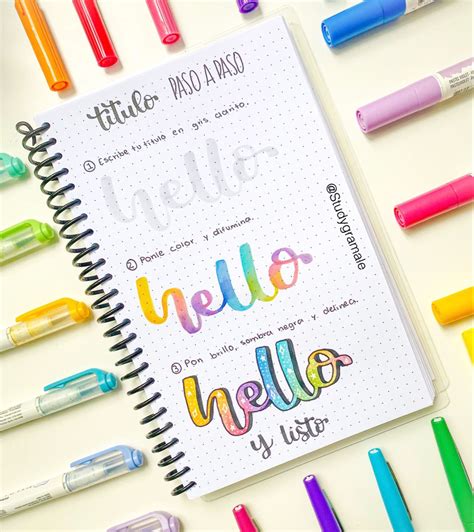 título PASO A PASO
① Escribe tu título en gris clarito.
hello
② Ponle color y difumina.
hello
③ Pon brillo, sombra negra y delinea.
hello
y listo
@Studygramale